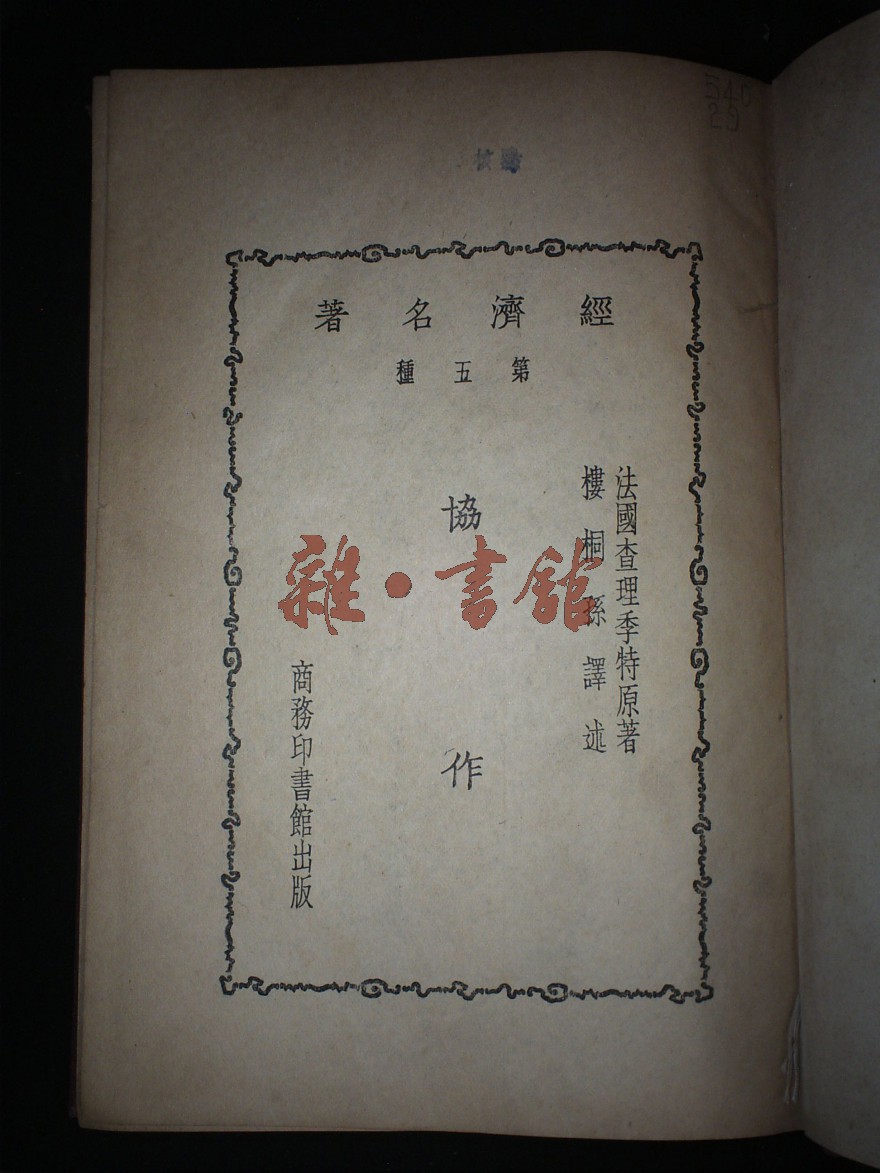 經濟名著
第五種
法國查理季特原著
樓桐孫譯述
協作
商務印書館出版
雜·書館
540
25